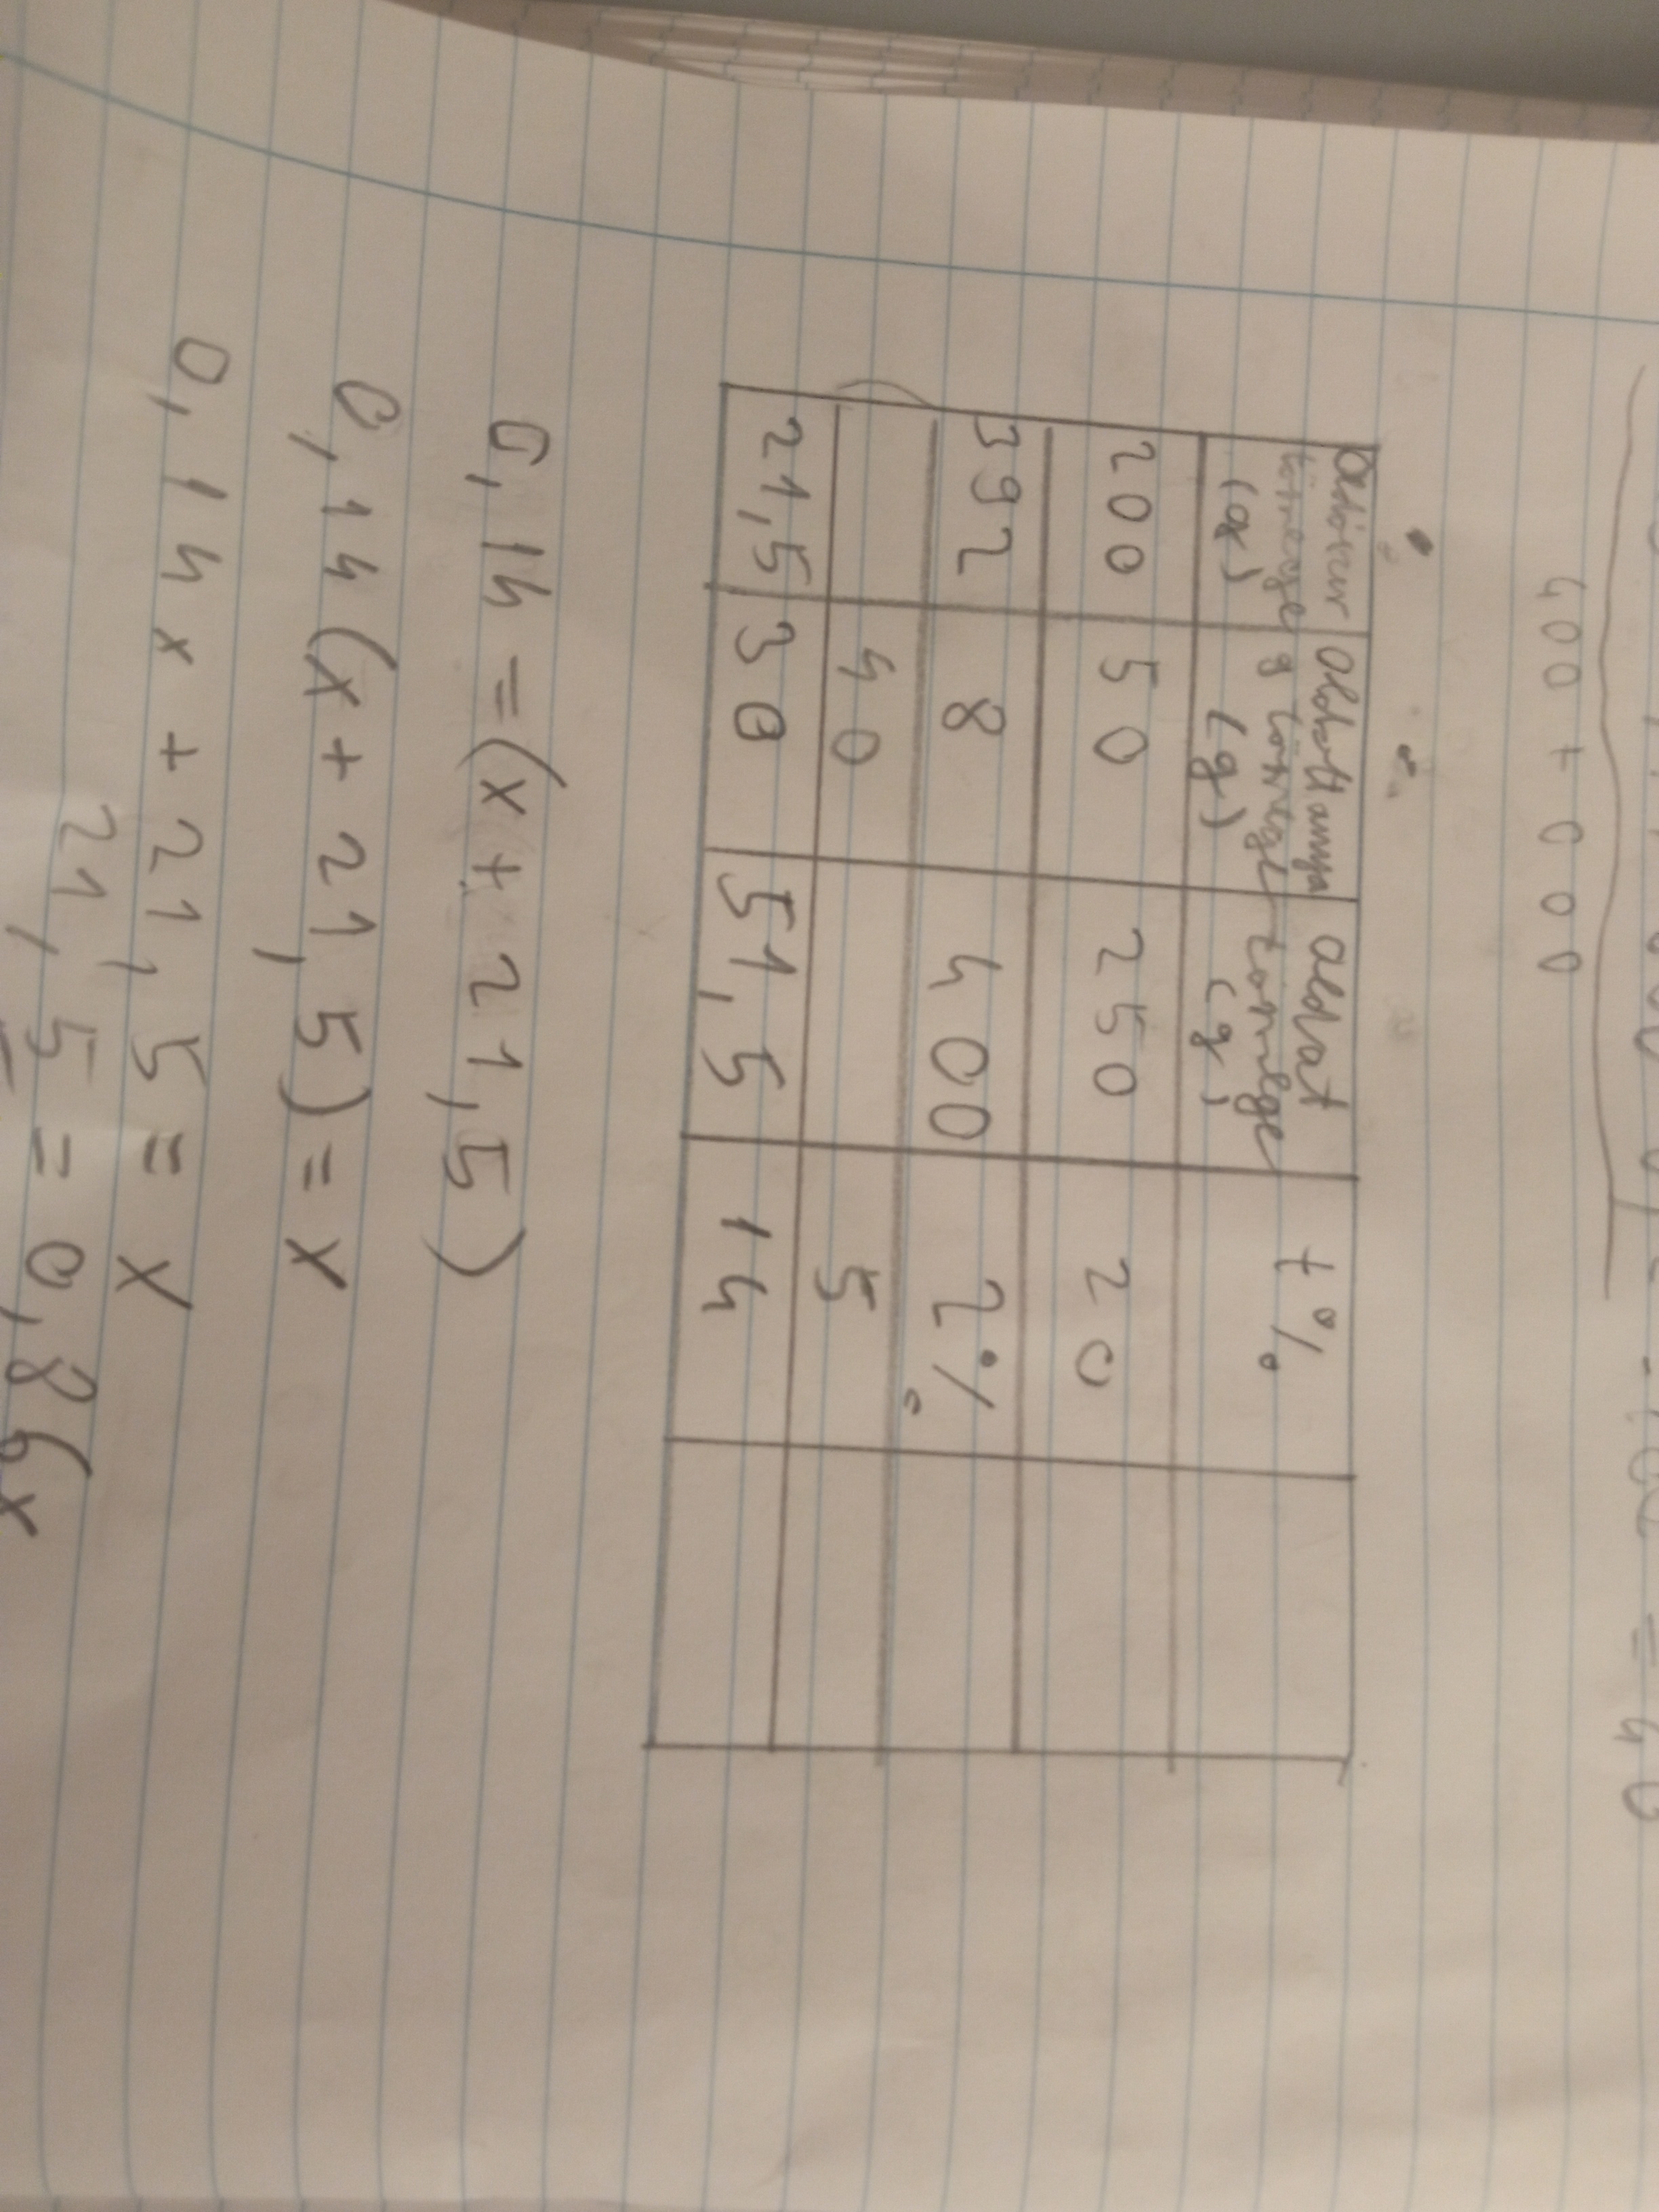 400 + 000
Oldószer Oldott anya oldat t%
tömege g tömege tömege
(g) (g) (g)
200 50 250 20
392 8 400 2%
40 5
21,5 30 51,5 14
0,14 = (x + 21,5)
0,14 (x + 21,5) = x
0,14x + 21,5 = x
21,5 = 0,86x